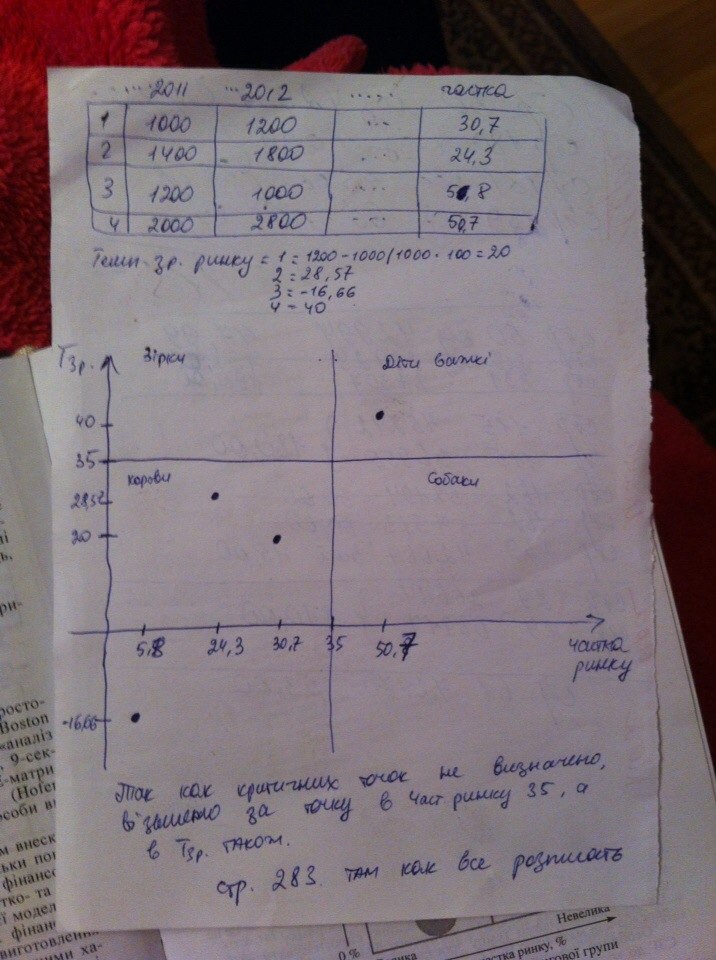 ... 2011 ... 2012 ..... частка
1 1000 1200 ... 30,7
2 1400 1800 ... 24,3
3 1200 1000 ... 5,8
4 2000 2800 ... 50,7
Темп зр. ринку = 1 = 1200-1000/1000 · 100 = 20
2 = 28,57
3 = -16,66
4 = 40
Тзр. Зірки Діти важкі
40
35
корови Собаки
28,57
20
5,8 24,3 30,7 35 50,7 частка
ринку
-16,66
Так как критичних точок не визначено,
візьмемо за точку в част. ринку 35, а
в Тзр. також.
стр. 283. там как все розписать
ні
ь,
ри-
росто-
Boston
«аналіз
9-сек-
-матри
(Hofer
особи
м внеск
ьки пог
фінансо
тко- та
ої модел
фінан
виготовлення
ими ха-
Невелика
0 %
лика
частка ринку, %
ової групи